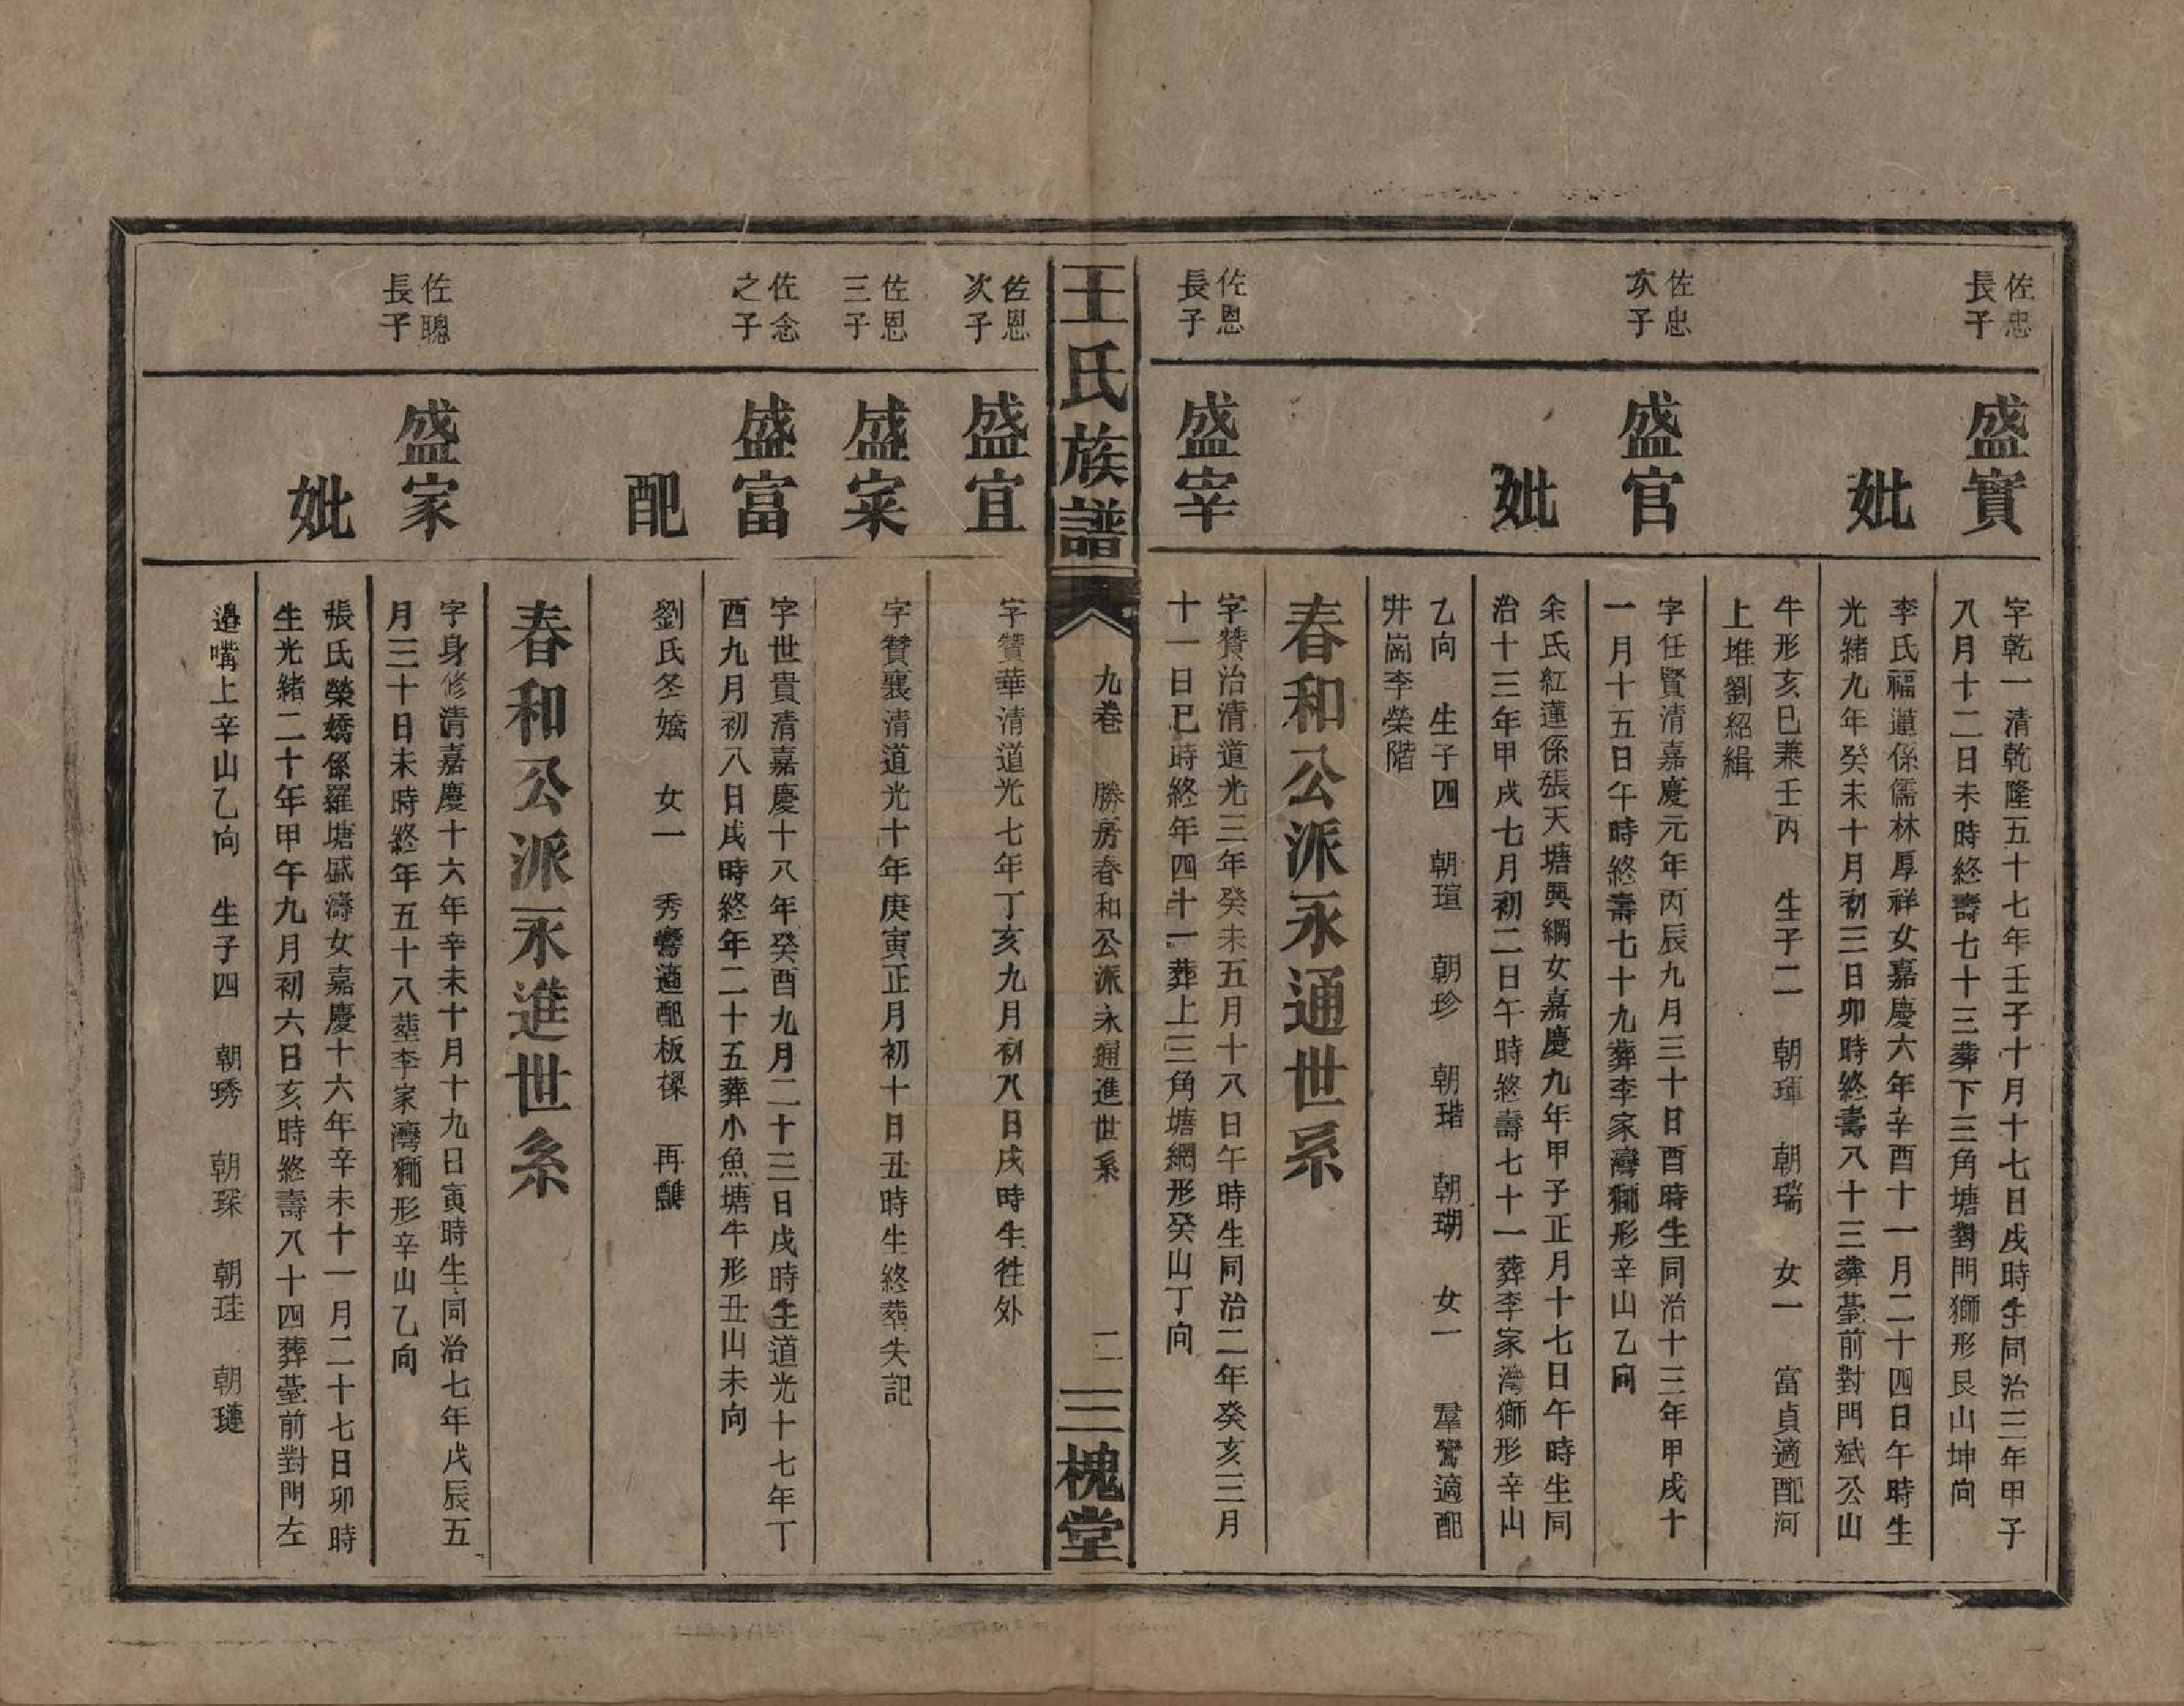 佐忠
長子
盛寶
字乾一清乾隆五十七年壬子十月十七日戌時生同治三年甲子
八月十二日未時終壽七十三葬下三角塘對門獅形艮山坤向
妣
李氏福蓮係儒林厚祥女嘉慶六年辛酉十一月二十四日午時生
光緒九年癸未十月初三日卯時終壽八十三葬臺前對門斌公山
牛形亥巳兼壬丙　生子二　朝琿　朝瑞　女一　富貞適配河
上堆劉紹緝
佐忠
次子
盛官
字任賢清嘉慶元年丙辰九月三十日酉時生同治十三年甲戌十
一月十五日午時終壽七十九葬李家灣獅形辛山乙向
妣
余氏紅蓮係張天塘興綱女嘉慶九年甲子正月十七日午時生同
治十三年甲戌七月初二日午時終壽七十一葬李家灣獅形辛山
乙向　生子四　朝瑄　朝珍　朝瑎　朝瑚　女一　羣鸞適配
井崗李榮階
春和公派永通世系
佐恩
長子
盛宰
字贊治清道光三年癸未五月十八日午時生同治二年癸亥三月
十一日巳時終年四十一葬上三角塘網形癸山丁向
王氏族譜
九卷　勝房春和公派永通進世系
二
三槐堂
佐恩
次子
盛宜
字贊華清道光七年丁亥九月初八日戌時生往外
佐恩
三子
盛寀
字贊襄清道光十年庚寅正月初十日丑時生終葬失記
佐念
之子
盛富
字世貴清嘉慶十八年癸酉九月二十三日戌時生道光十七年丁
酉九月初八日戌時終年二十五葬小魚塘牛形丑山未向
配
劉氏冬嬌　女一　秀鸞適配板樑　再醮
春和公派永進世系
佐聰
長子
盛家
字身修清嘉慶十六年辛未十月十九日寅時生同治七年戊辰五
月三十日未時終年五十八葬李家灣獅形辛山乙向
妣
張氏榮嬌係羅塘盛濤女嘉慶十六年辛未十一月二十七日卯時
生光緒二十年甲午九月初六日亥時終壽八十四葬臺前對門左
邊嘴上辛山乙向　生子四　朝琇　朝琛　朝珪　朝璉